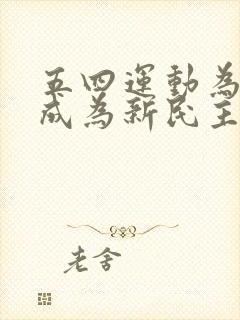 五四運動為
成為新民主
老舍